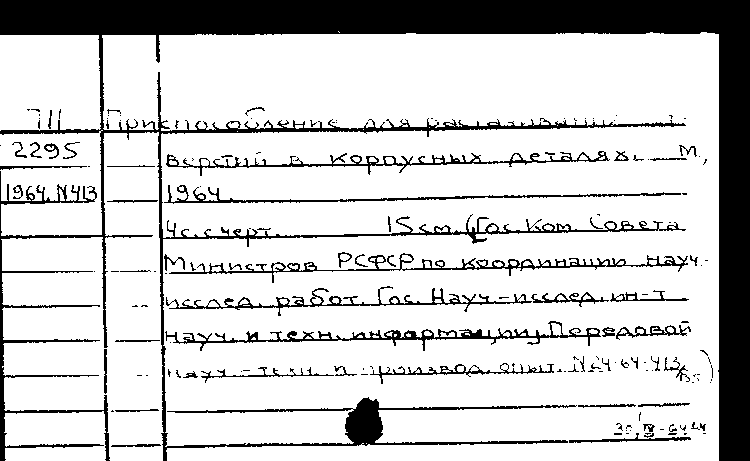 П Приспособление для растачивания от-
2295 верстий в корпусных деталях. М,
1964. N413 1964.
4с. с черт. 15см. (Гос. Ком. Совета
Министров РСФСР по координации науч-
исслед. работ. Гос. Науч-исслед. ин-т
науч. и техн. информации, Передовой
науч-техн. и производ. опыт. N24-64-413/